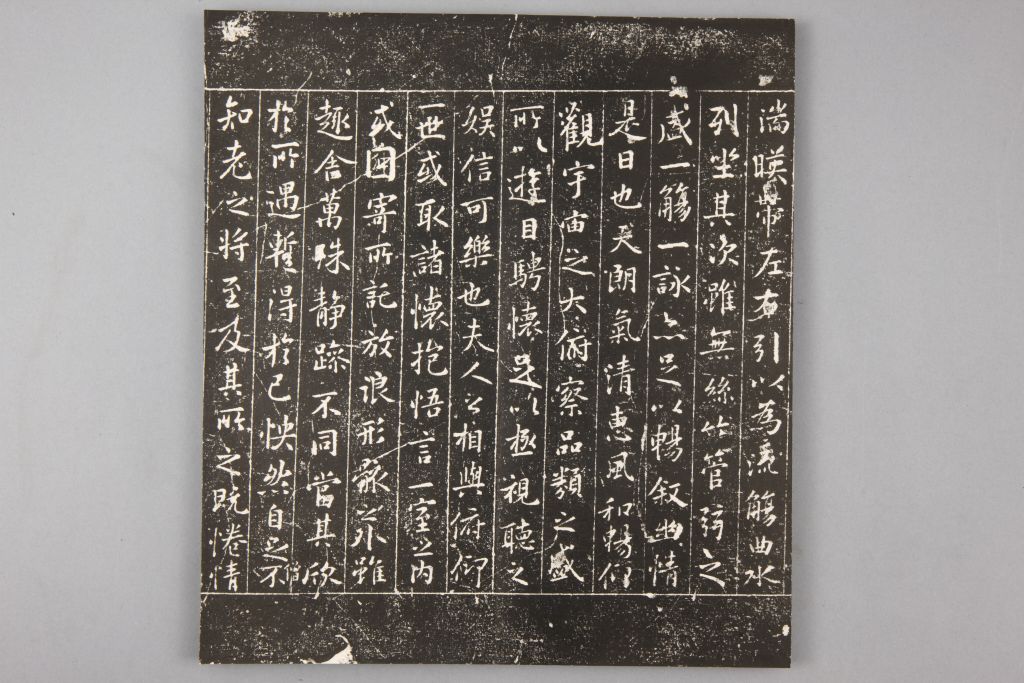 湍暎帶左右引以為流觴曲水
列坐其次雖無絲竹管弦之
盛一觴一詠亦足以暢叙幽情
是日也天朗氣清惠風和暢仰
觀宇宙之大俯察品類之盛
所以遊目騁懷足以極視聽之
娱信可樂也夫人之相與俯仰
一世或取諸懷抱悟言一室之内
或因寄所託放浪形骸之外雖
趣舍萬殊静躁不同當其欣
於所遇蹔得於己怏然自足不
知老之將至及其所之既惓情